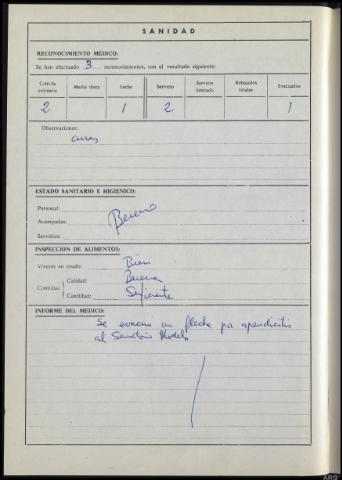 SANIDAD
RECONOCIMIENTO MEDICO:
Se han efectuado 3 reconocimientos, con el resultado siguiente:
Comida ordinaria Media dieta Leche Servicio Servicio limitado Rebajados totales Evacuados
2 1 2 1
Observaciones:
curas
ESTADO SANITARIO E HIGIENICO:
Personal:
Acampadas: Bueno
Servicios:
INSPECCION DE ALIMENTOS:
Víveres en crudo: Bien
Comidas: Calidad: Buena
Cantidad: Suficiente
INFORME DEL MEDICO:
Se evacuó un flecha por apendicitis
al Sanatorio Modelo
ARG